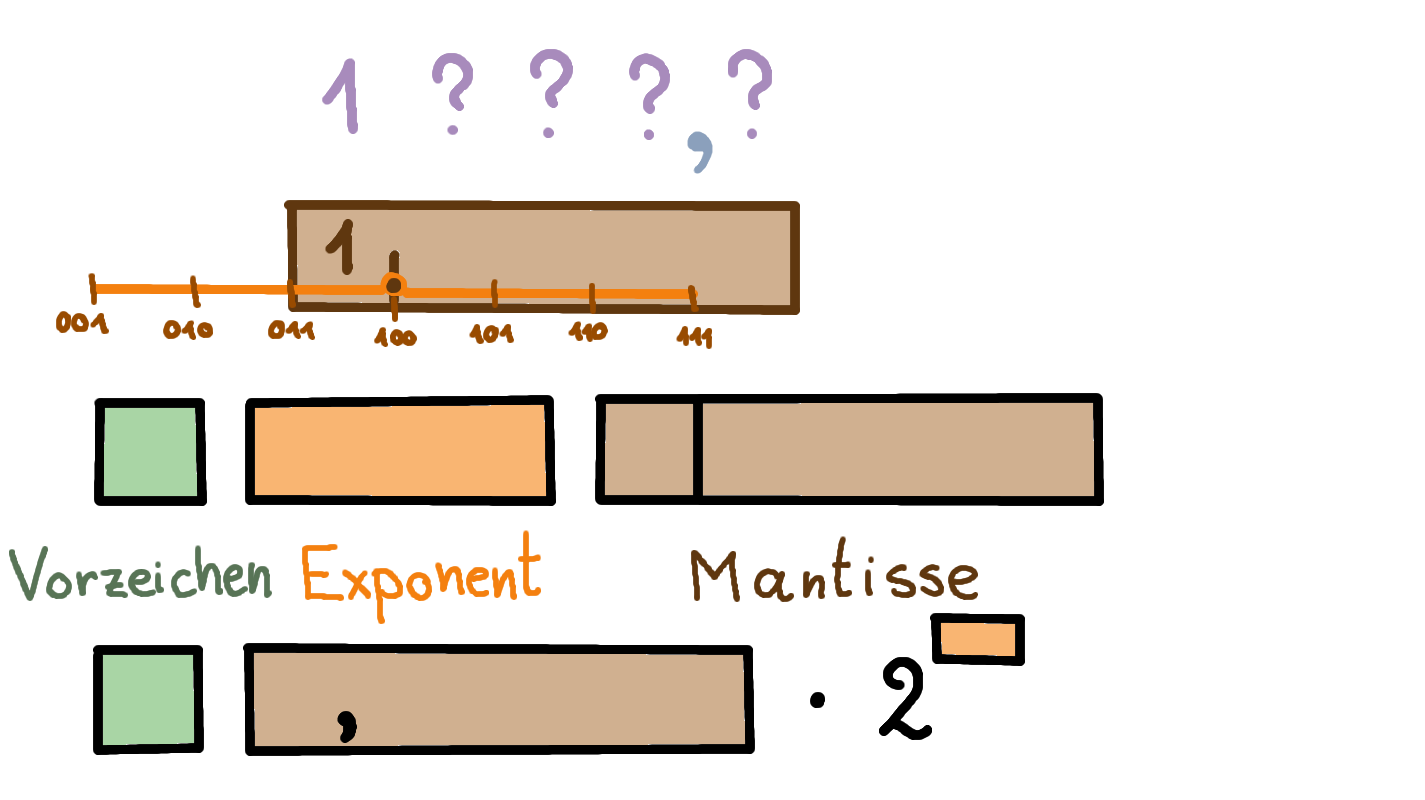 1 ? ? ? , ?
1
001 010 011 100 101 110 111
Vorzeichen Exponent Mantisse
, · 2